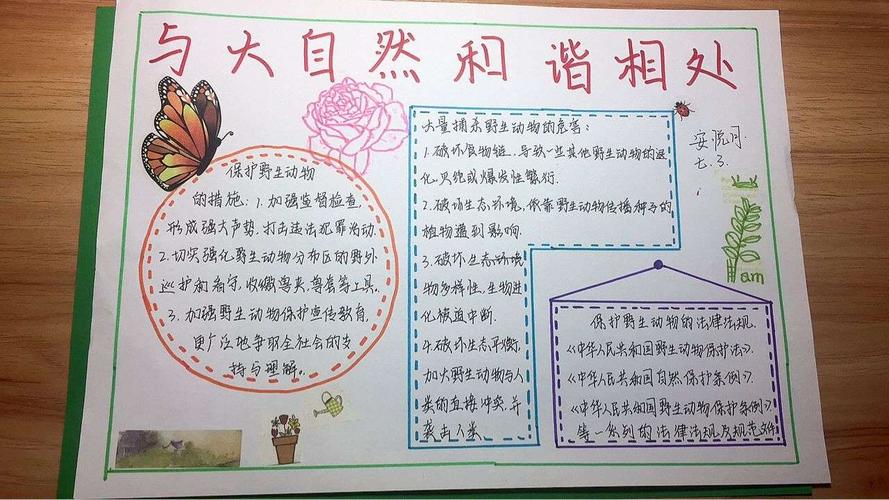 与大自然和谐相处
保护野生动物
的措施：1.加强监督检查，
形成强大声势，打击违法犯罪活动.
2.切实强化野生动物分布区的野外
巡护和看守，收缴兽夹、兽套等工具。
3.加强野生动物保护宣传教育，
更广泛地争取全社会的支
持与理解。
大量捕杀野生动物的危害：
1.破坏食物链，导致一些其他野生动物的退
化、灭绝或爆发性繁衍.
2.破坏生态环境，依靠野生动物传播种子的
植物遭到影响.
3.破坏生态环境
物多样性，生物进
化被迫中断.
4.破坏生态平衡，
加大野生动物与人
类的直接冲突，并
袭击人类
安悦月.
七.3.
am
保护野生动物的法律法规.
《中华人民共和国野生动物保护法》.
《中华人民共和国自然保护条例》.
《中华人民共和国野生动物保护条例》.
等一系列的法律法规及规范文件